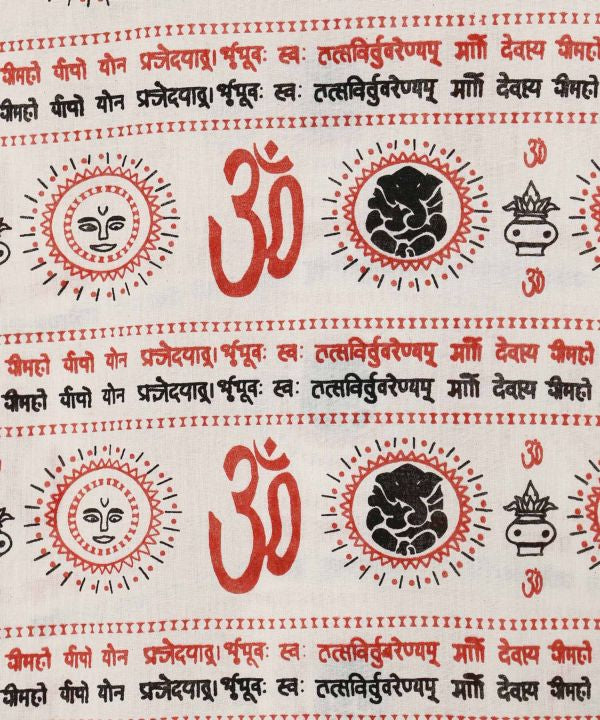 धीमहो र्यापो योन प्रजेदयात्र। र्भूभूवः स्वः तत्सविर्तुवरेण्यम् र्मागो देवास्य धीमहो
धीमहो र्यापो योन प्रजेदयात्र। र्भूभूवः स्वः तत्सविर्तुवरेण्यम् र्मागो देवास्य धीमहो
ॐ
ॐ
ॐ
धीमहो र्यापो योन प्रजेदयात्र। र्भूभूवः स्वः तत्सविर्तुवरेण्यम् र्मागो देवास्य धीमहो
धीमहो र्यापो योन प्रजेदयात्र। र्भूभूवः स्वः तत्सविर्तुवरेण्यम् र्मागो देवास्य धीमहो
ॐ
ॐ
ॐ
धीमहो र्यापो योन प्रजेदयात्र। र्भूभूवः स्वः तत्सविर्तुवरेण्यम् र्मागो देवास्य धीमहो
धीमहो र्यापो योन प्रजेदयात्र। र्भूभूवः स्वः तत्सविर्तुवरेण्यम् र्मागो देवास्य धीमहो